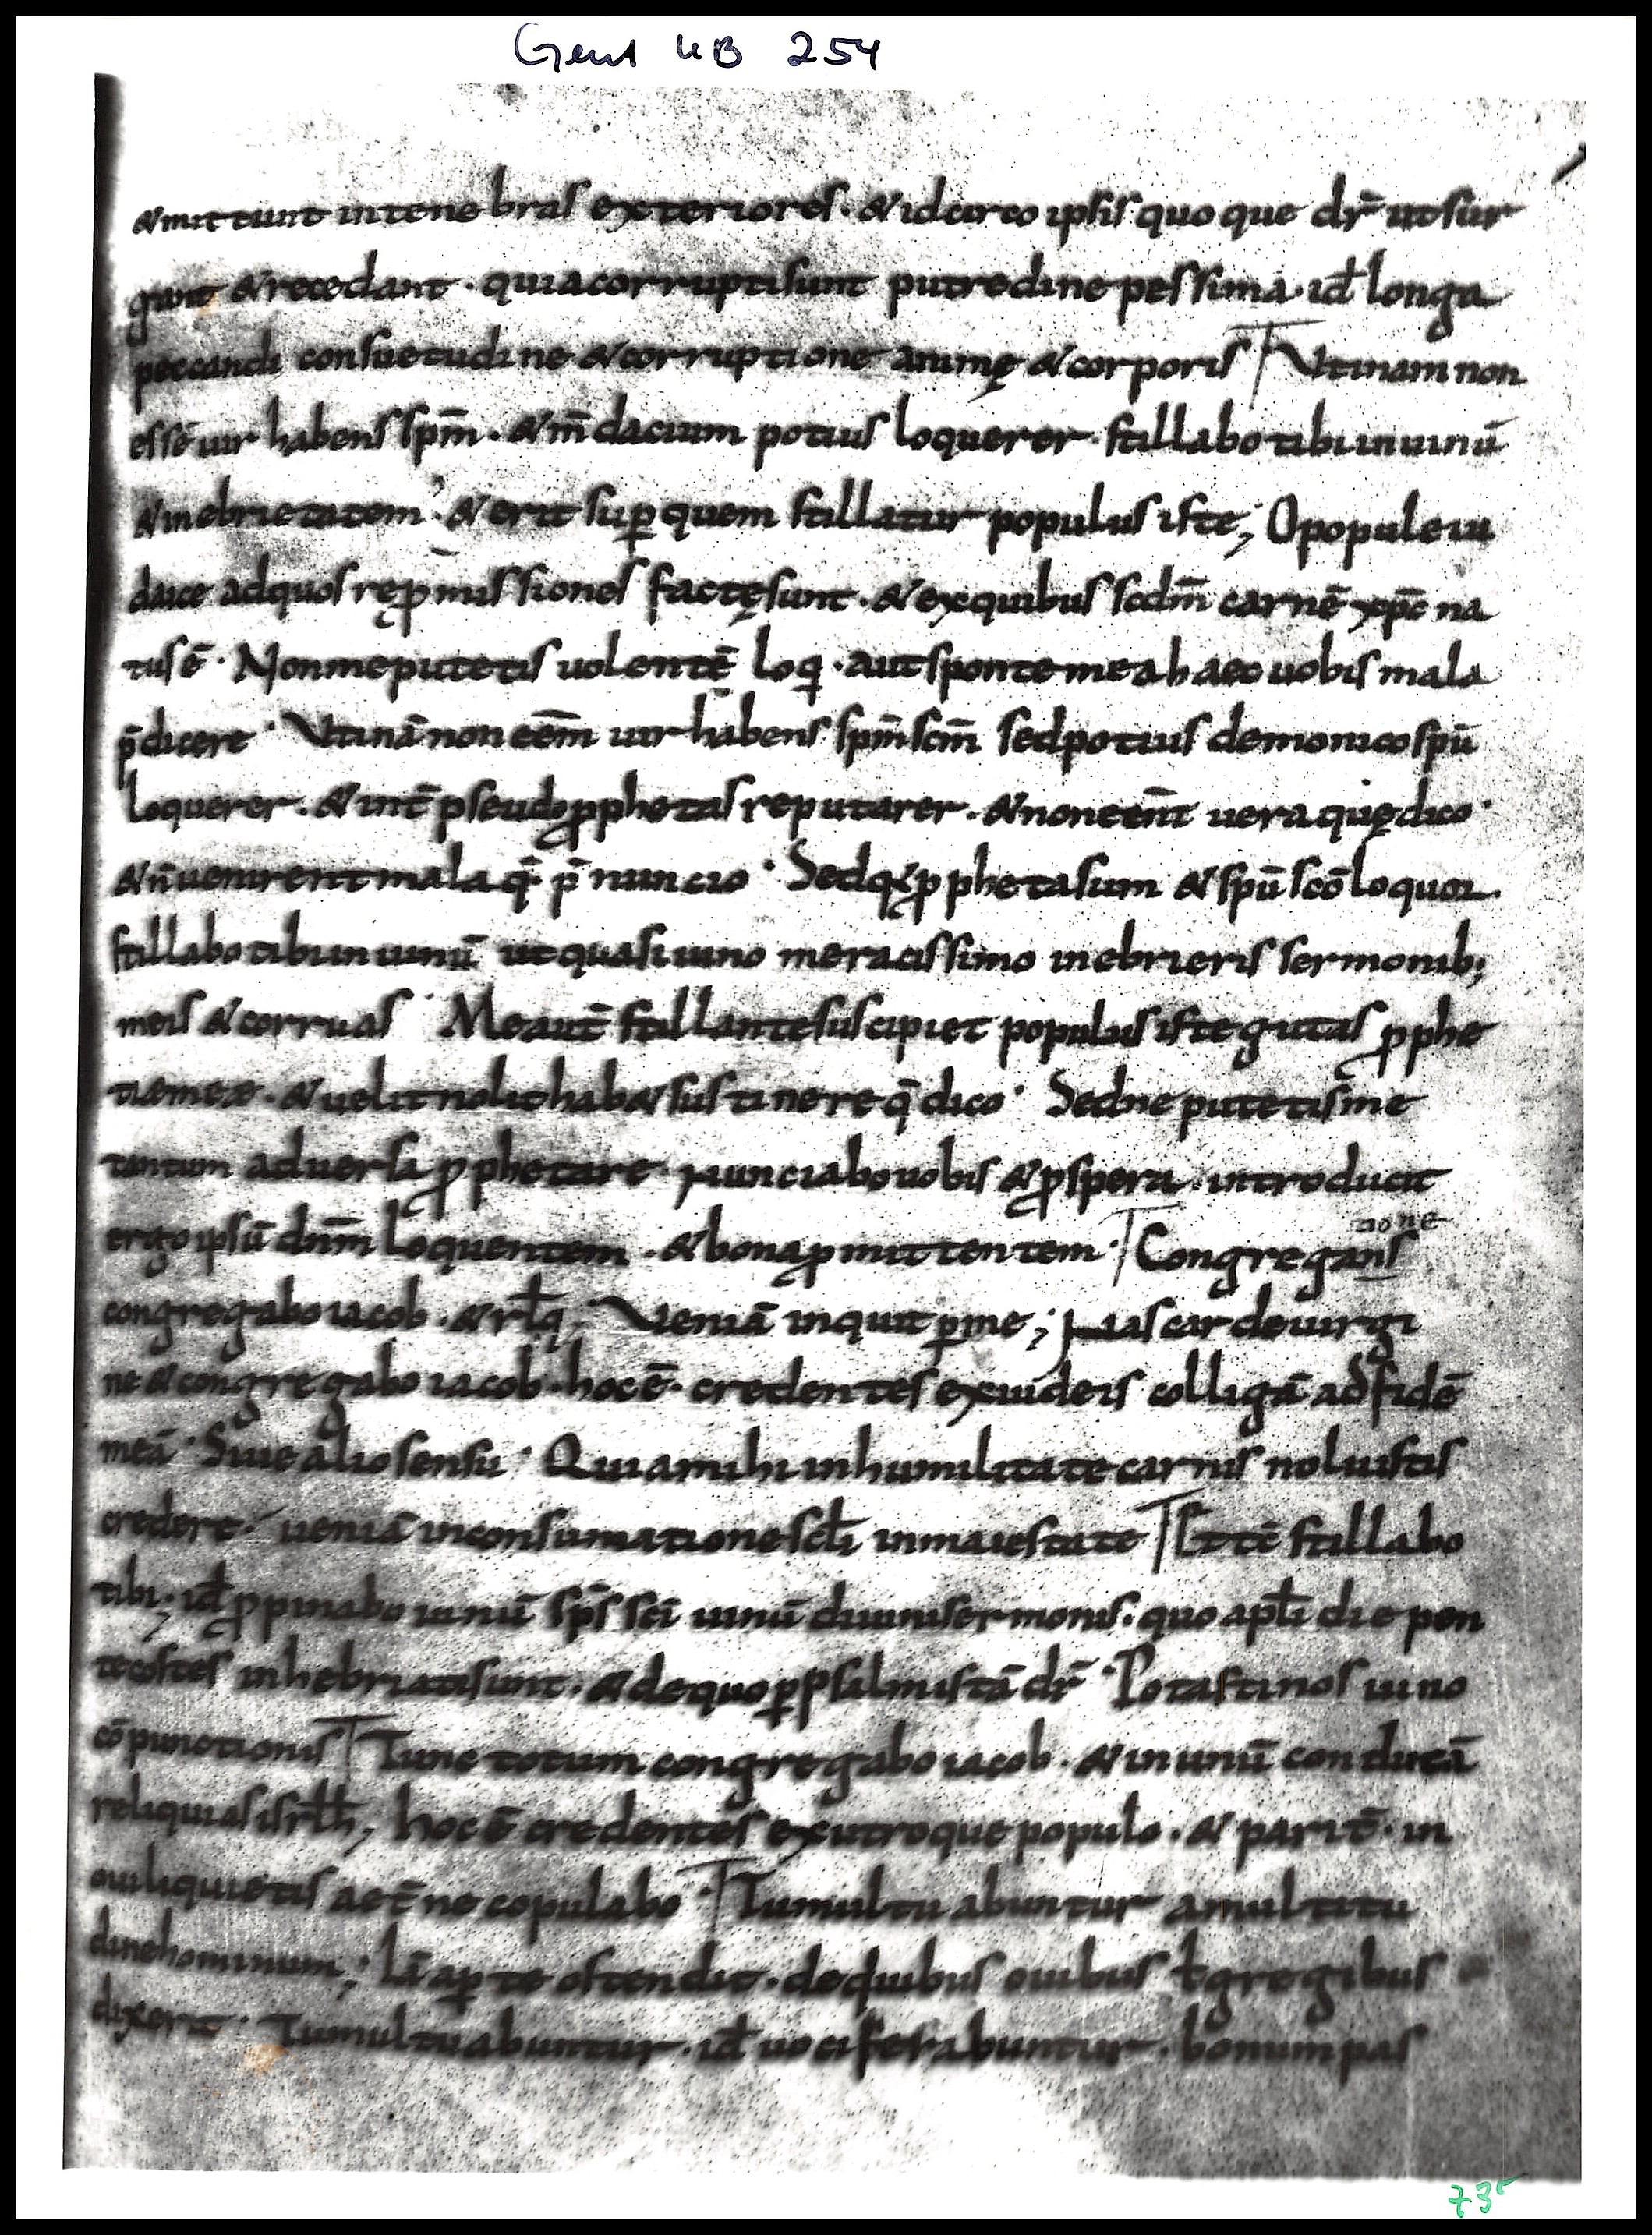 Gent UB 254
&mittunt intenebras exteriores · &idcirco ipsis quo que dr̄ utsur
gant &recedant · quiacorruptisunt putredine pessima · id̄ longa
peccandi consuetudine &corruptione animę &corporis Utinam non
essē uir habens spm̄ · &m̄dacium potius loquerer · stillabo tibi inuinū
&inebrietatem · &erit suꝑ quem stillatur populus iste; Opopuleiu
daice adquos reꝓmissiones factęsunt · &exquibus scdm̄ carnē xp̄c na
tusē · Nonmeputetis uolentē loq̄ · autspontemea haec uobis mala
p̄dicere · Utinā non eēm uir habens spm̄ scm̄ sedpotius demonicospū
loquerer · &int̄ pseudoꝓphetas reputarer · &noneēnt ueraquędico ·
&n̄uenirent mala q̄ p̄nuncio · Sedq; ꝓphetasum &spū scō loquor ·
stillabo tibi inuinū ut quasi uino meracissimo inebrieris sermonib;
meis &corruas · Meaut̄ stillantesuscipiet populus iste gutas ꝓphe
tiæmeæ · &uelitnolit hab&sustinere q̄ dico · Sedne putetisme
tantum aduersa ꝓphetare · Nunciabouobis &ꝓspera · introducit
ergo ipsū dnm̄ loquentem · &bonaꝓmittentem · Congregans
tione
congregabo iacob · &rlq̄ · Veniā inquit ꝑme; Nascar deuirgi
ne &congregabo iacob · hocē · credentes exiudeis colligā adfidē
meā · Siue alio sensu · Quiamihi inhumilitate carnis noluistis
credere · ueniā inconsumationescl̄i inmaiestate &tc̄ stillabo
tibi; id̄ ꝓpinabo uinū sp̄s sc̄i uinū diuinisermonis · quo apl̄i die pen
tecostes inhebriatisunt · &dequo ꝑ psalmistā dr̄ · Potastinos uino
cōpunctionis Tunc totum congregabo iacob · &inunū conducā
reliquias isrl̄h; hocē credentes exutroque populo · &parit̄ · in
ouiliquietis aet̄ne copulabo · Tumultuabuntur amultitu
dinehominum; Iā aꝑte ostendit · dequibus ouibus ł gregibus
dixerit · Tumultuabuntur · id̄ uociferabuntur · bonumpas
73r